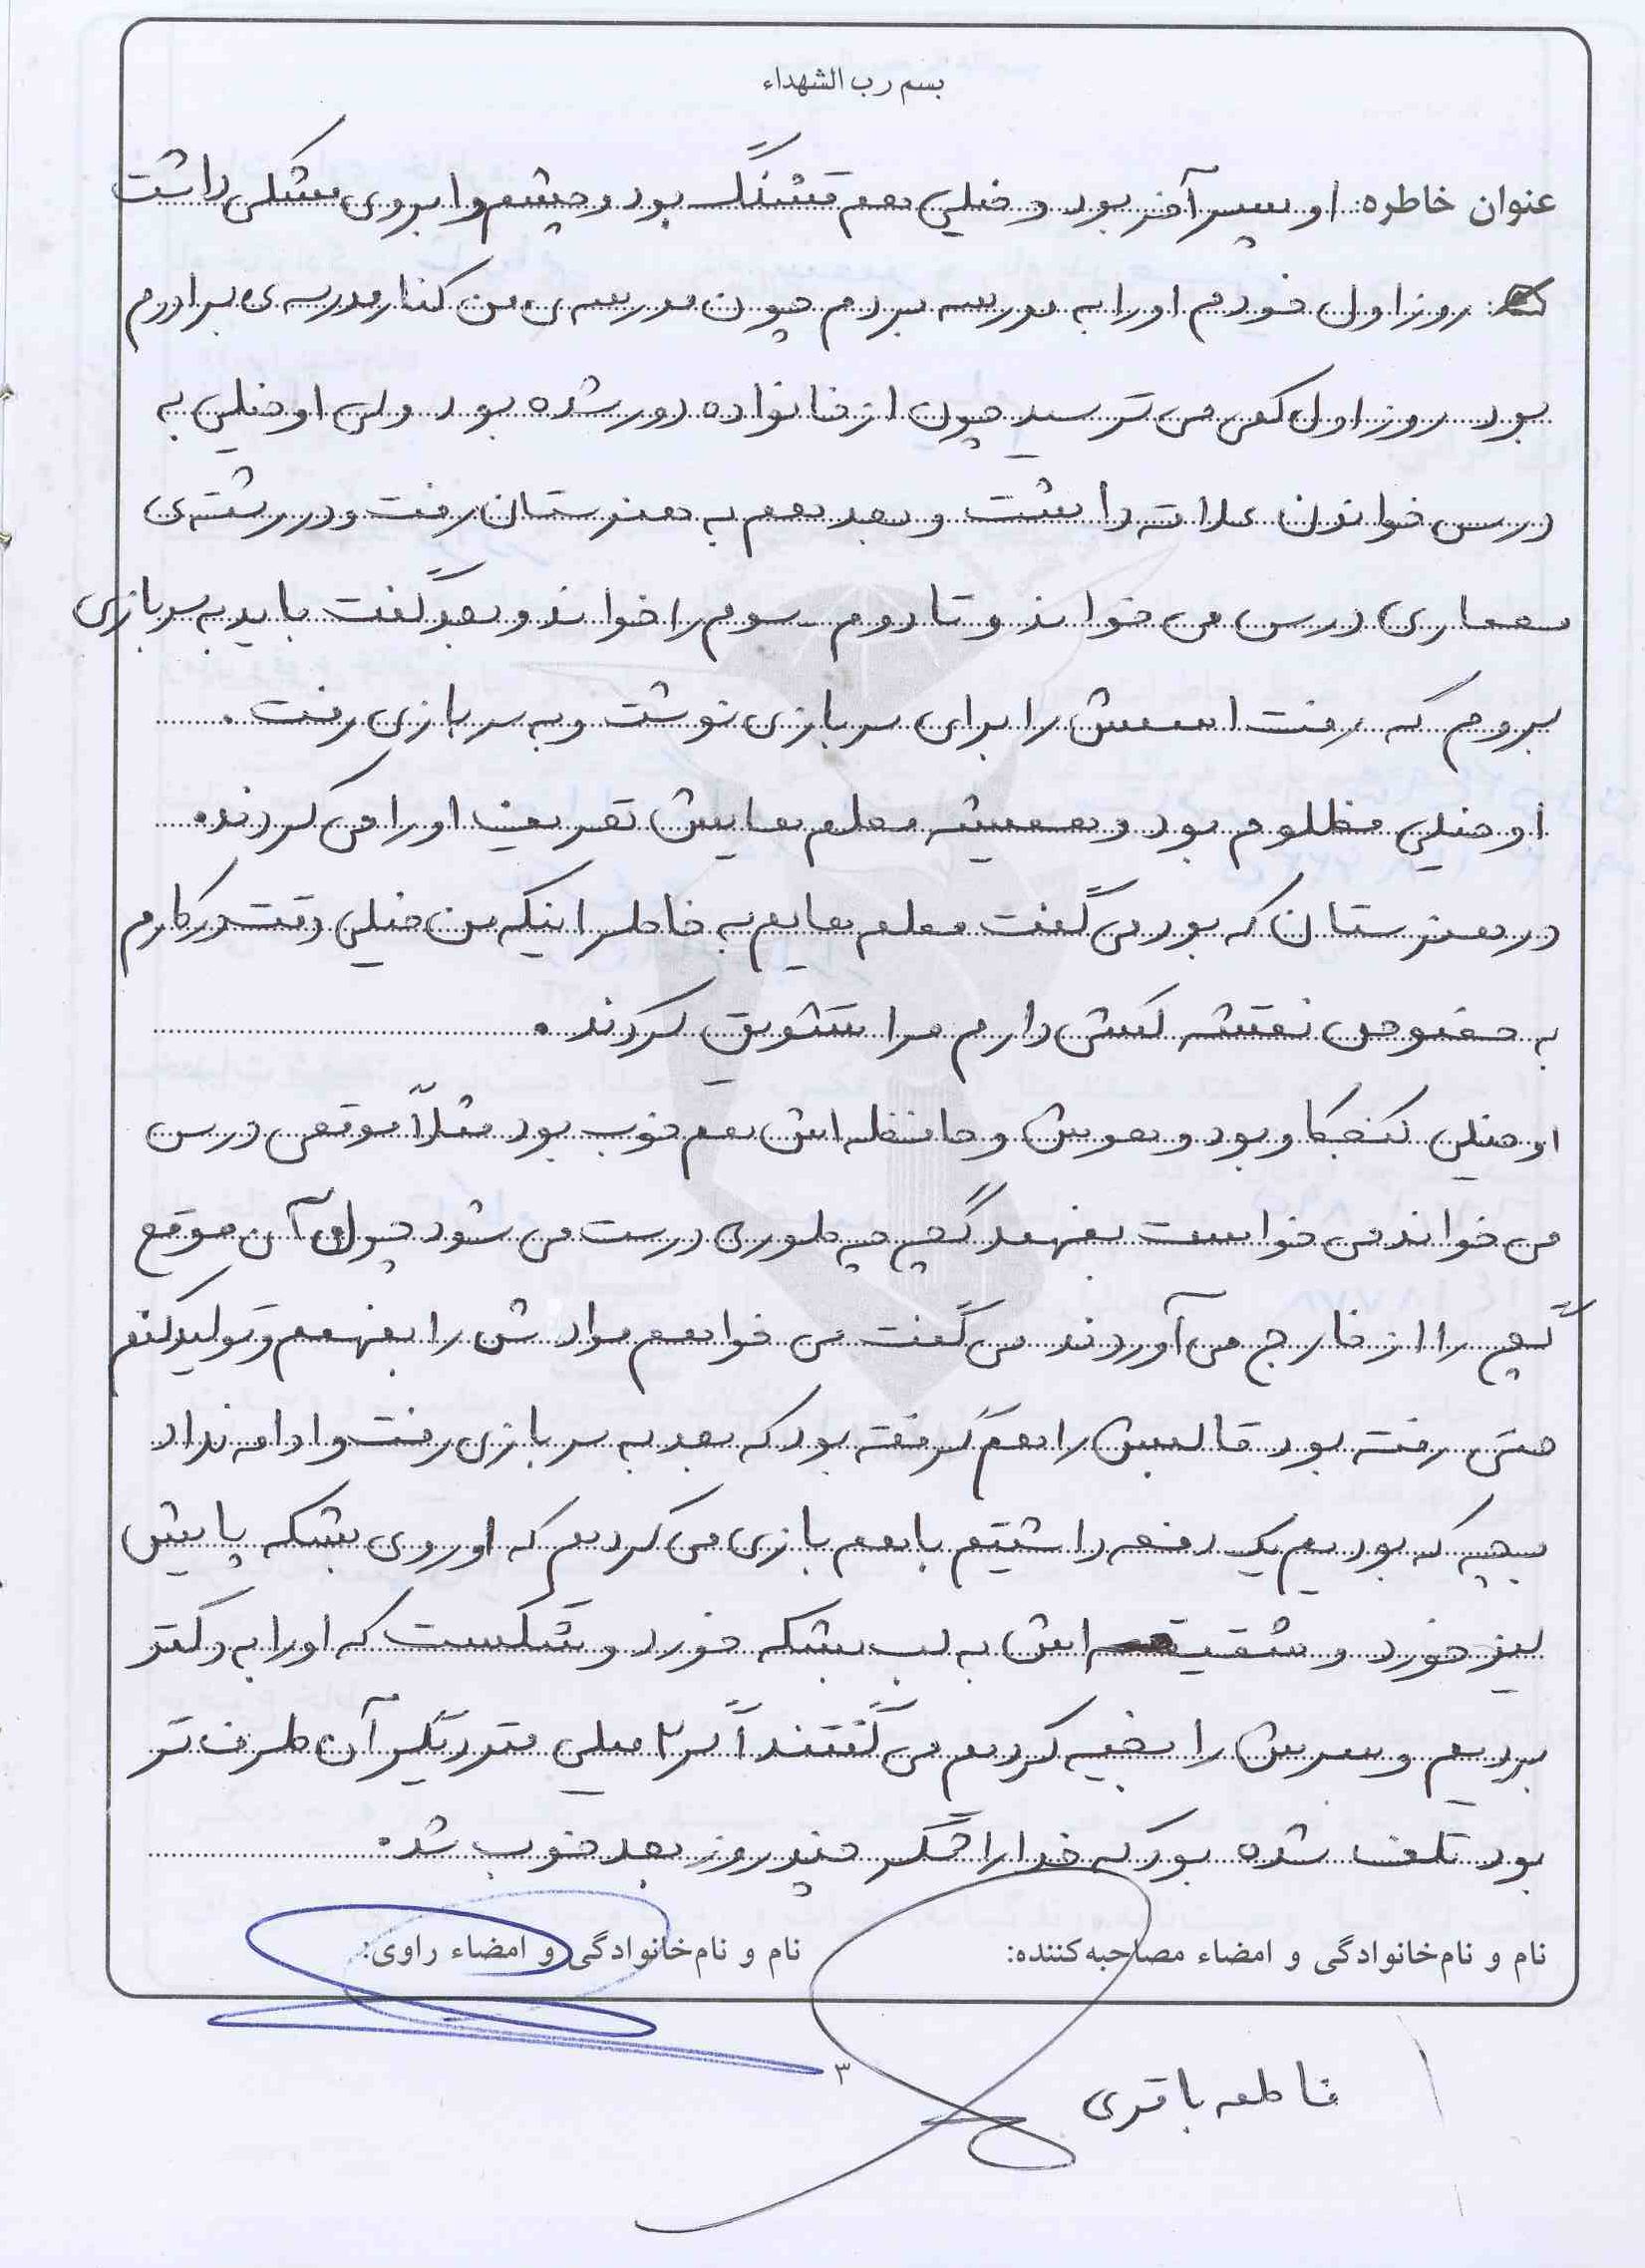 بسم رب الشهداء
عنوان خاطره: او پسر آخر بود و خیلی هم قشنگ بود و چشم و ابروی مشکی داشت
روز اول خودم او را به مدرسه بردم چون مدرسه ی من کنار مدرسه ی برادرم
بود. روز اول کمی می ترسید چون از خانواده دور شده بود ولی او خیلی به
درس خواندن علاقه داشت و بعد هم به هنرستان رفت و در رشته ی
معماری درس می خواند و تا دوم سوم را خواند و بعد گفت باید به سربازی
بروم که رفت اسمش را برای سربازی نوشت و به سربازی رفت.
او خیلی مظلوم بود و همیشه معلم هایش تعریف او را می کردند.
در هنرستان که بود می گفت معلم هایم به خاطر اینکه من خیلی دقت در کارم
به خصوص نقشه کشی دارم مرا تشویق کردند.
او خیلی کنجکاو بود و هوش و حافظه اش هم خوب بود مثلاً موقعی درس
می خواند می خواست بفهمد گچ چه طوری درست می شود چون آن موقع
گچ را از خارج می آوردند می گفت می خواهم موادش را بفهمم و تولید کنم
حتی رفته بود قالبش را هم گرفته بود که بعد به سربازی رفت و ادامه نداد
بچه که بودیم یک دفعه داشتیم با هم بازی می کردیم که او روی بشکه پایش
لیز خورد و شقیقه اش به لب بشکه خورد و شکست که او را به دکتر
بردیم و سرش را بخیه کردیم می گفتند اگر ۲ میلی متر دیگر آن طرف تر
بود تلف شده بود که خدا را شکر چند روز بعد خوب شد.
نام و نام خانوادگی و امضاء مصاحبه کننده: نام و نام خانوادگی و امضاء راوی:
۳
فاطمه باقری